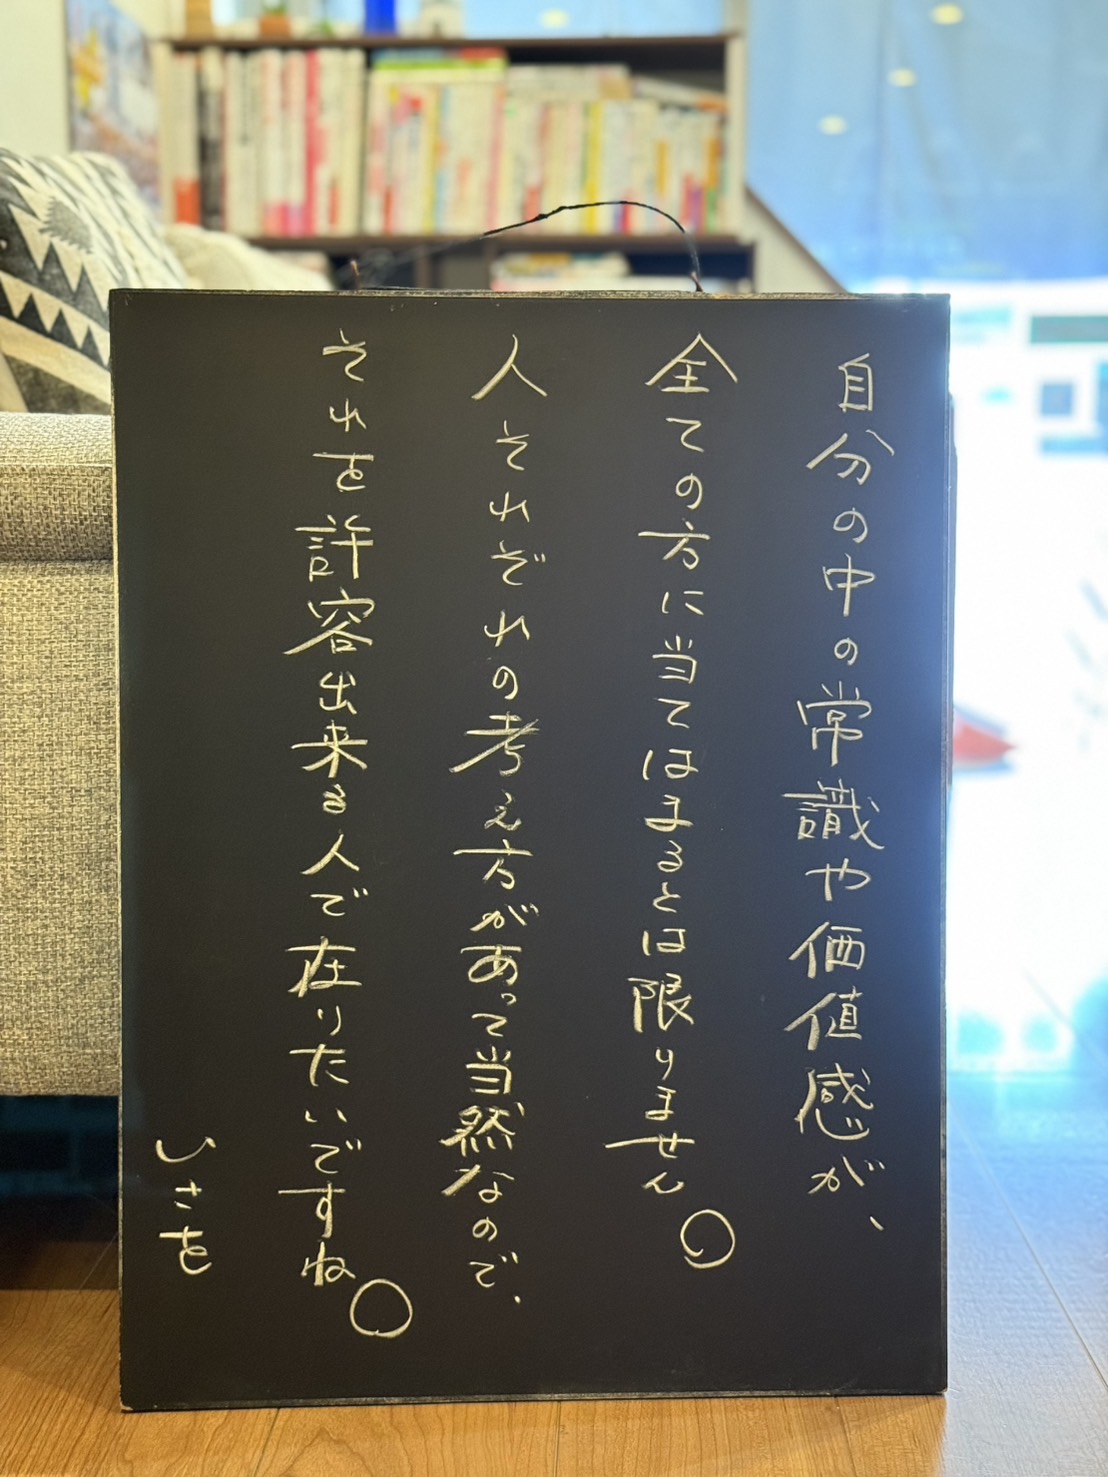 自分の中の常識や価値感が、
全ての方に当てはまるとは限りません。
人それぞれの考え方があって当然なので、
それを許容出来る人で在りたいですね。
いさを